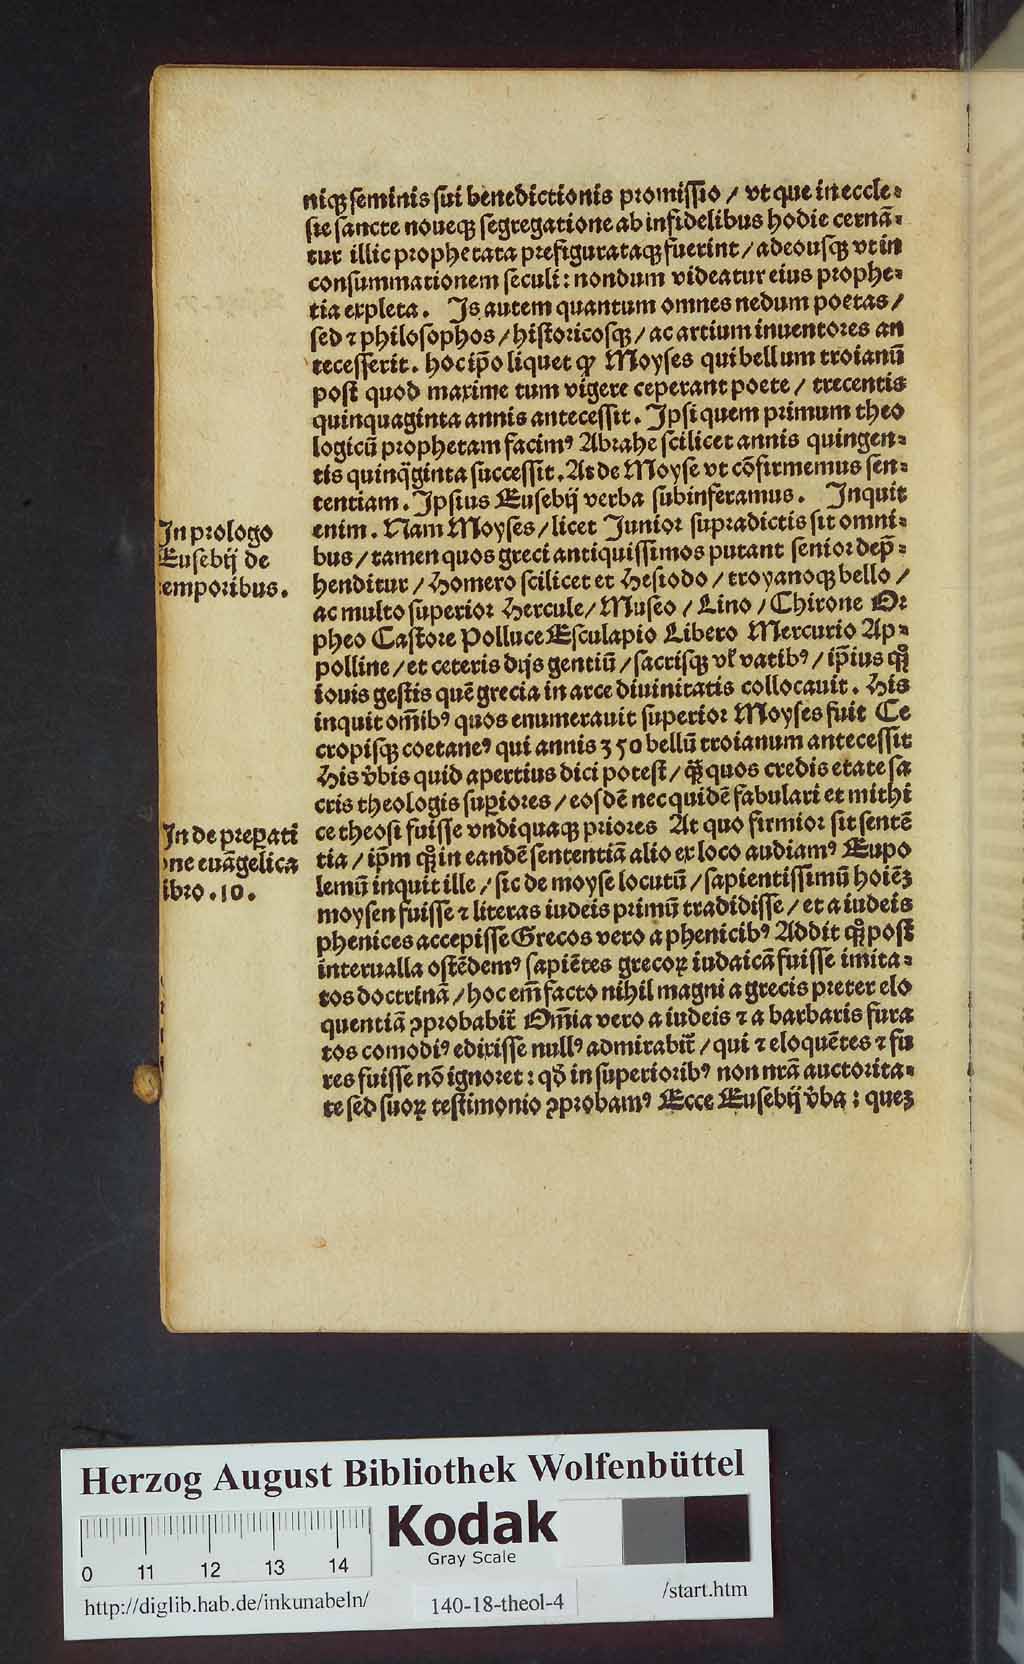 niqꝫ seminis sui benedictionis promissio / vt que in eccle⸗
sie sancte noueqꝫ segregatione ab infidelibus hodie cernā⸗
tur illic prophetata prefigurataqꝫ fuerint / adeousqꝫ vt in
consummationem seculi: nondum videatur eius prophe⸗
tia expleta . Is autem quantum omnes nedum poetas /
sed ⁊ philosophos / historicosqꝫ / ac artium inuentores an
tecesserit. hoc ip̄o liquet ꝙ Moyses qui bellum troianū
post quod maxime tum vigere ceperant poete / trecentis
quinquaginta annis antecessit. Ipsi quem primum theo
logicū prophetam facimꝰ Abrahe scilicet annis quingen⸗
tis quinq̈ginta successit. At de Moyse vt cōfirmemus sen⸗
tentiam. Ipsius Eusebij verba subinferamus. Inquit
In prologo
Eusebij de
emporibus.
enim. Nam Moyses / licet Iunior supradictis sit omni⸗
bus / tamen quos greci antiquissimos putant senior dep̄⸗
henditur / Homero scilicet et Hesiodo / troyanoqꝫ bello /
ac multo superior Hercule / Museo / Lino / Chirone Or
pheo Castore Polluce Esculapio Libero Mercurio Ap⸗
polline / et ceteris dijs gentiū / sacrisqꝫ vl̕ vatibꝰ / ip̄ius qꝫͦ
iouis gestis quē grecia in arce diuinitatis collocauit. His
inquit om̄ibꝰ quos enumerauit superior Moyses fuit Ce
cropisqꝫ coetaneꝰ qui annis 350 bellū troianum antecessit
His v̄bis quid apertius dici potest / qꝫ̄ quos credis etate sa
cris theologis suꝑiores / eosdē nec quidē fabulari et mithi
In de preꝑati
one euāgelica
ibro .10.
ce theosi fuisse vndiquaqꝫ priores At quo firmior sit sentē
tia / ip̄m qꝫͦ in eandē sententiā alio ex loco audiamꝰ Eupo
lemū inquit ille / sic de moyse locutū / sapientissimū hoiēꝫ
moysen fuisse ⁊ literas iudeis primū tradidisse / et a iudeis
phenices accepisse Grecos vero a phenicibꝰ Addit qꝫͦ post
interualla ostēdemꝰ sapiētes grecoꝝ iudaicā fuisse imita⸗
tos doctrinā / hoc em̄ facto nihil magni a grecis preter elo
quentiā ꝓprobabit̄ Om̄ia vero a iudeis ⁊ a barbaris fura
tos comodiꝰ edixisse nullꝰ admirabit̄ / qui ⁊ eloquētes ⁊ fu
res fuisse nō ignoret: qd̄ in superioribꝰ non nrā auctorita⸗
te sed suoꝝ testimonio ꝓprobamꝰ Ecce Eusebij v̄ba: queꝫ
Herzog August Bibliothek Wolfenbüttel
0 11 12 13 14
Kodak
Gray Scale
http://diglib.hab.de/inkunabeln/
140-18-theol-4
/start.htm